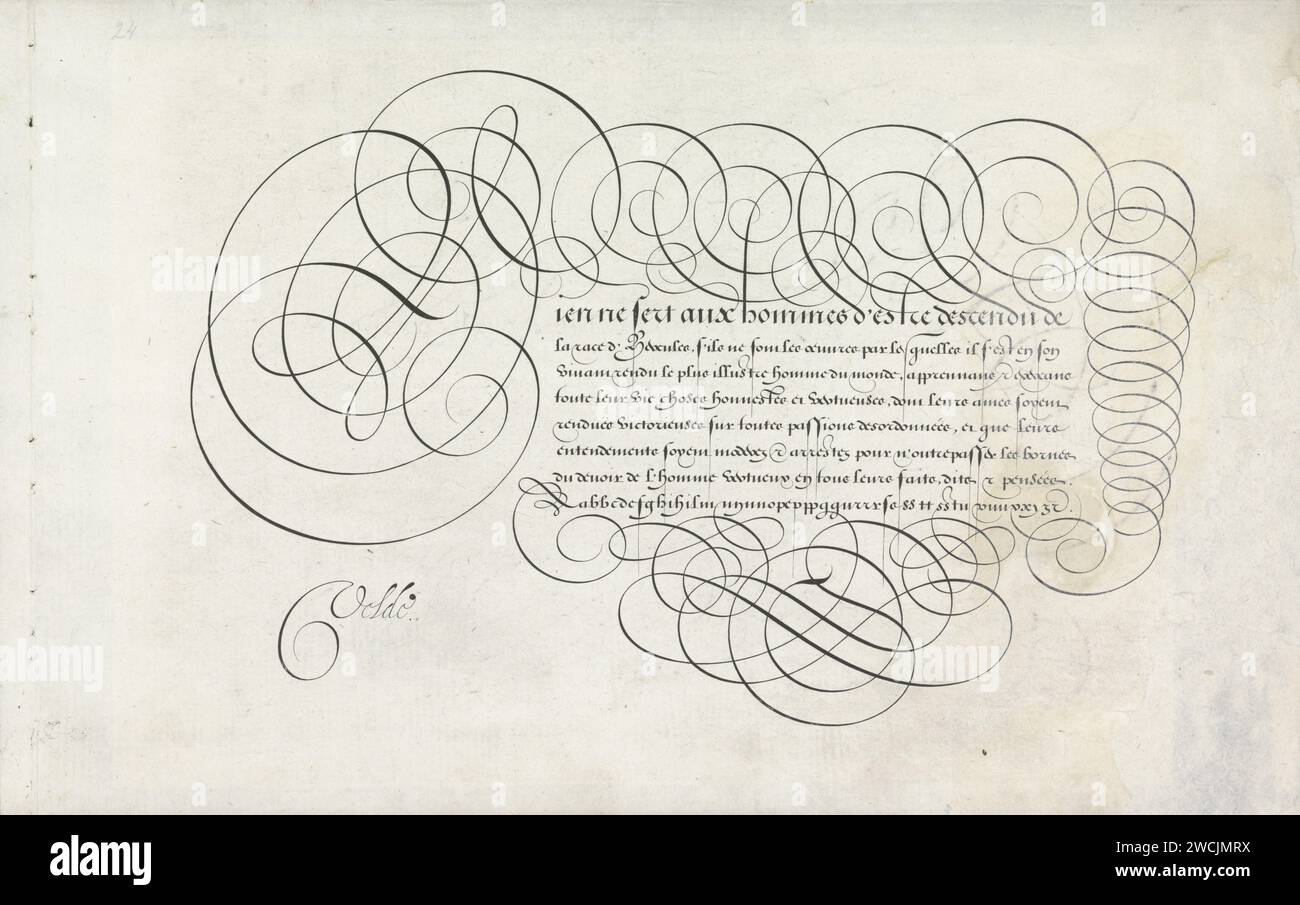 24
Rien ne sert aux hommes d'estre descendu de
la race d'Hercules, s'ils ne font les œuvres par lesquelles il s'est en son
vivant rendu le plus illustre homme du monde, apprennans & exerceans
toute leur vie choses honnestes et vertueuses, dont leurs ames soyent
rendues victorieuses sur toutes passions desordonnées, et que leurs
entendements soyent moderez & arrestez pour n'outrepasser les bornes
du devoir de l'homme vertueux en tous leurs faits, dits & pensées.
Velde.
alamy
Image ID: 2WCJMRX
www.alamy.com